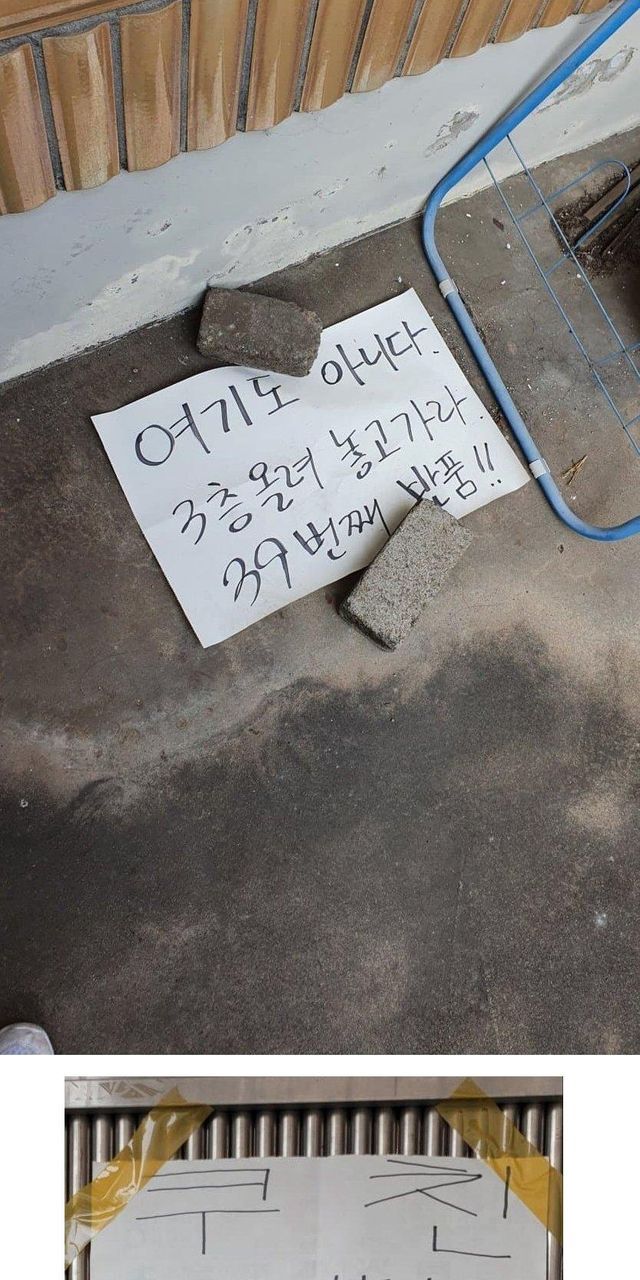 여기도 아니다.
3층올려 놓고가라.
39번째 반품!!
쿠 친